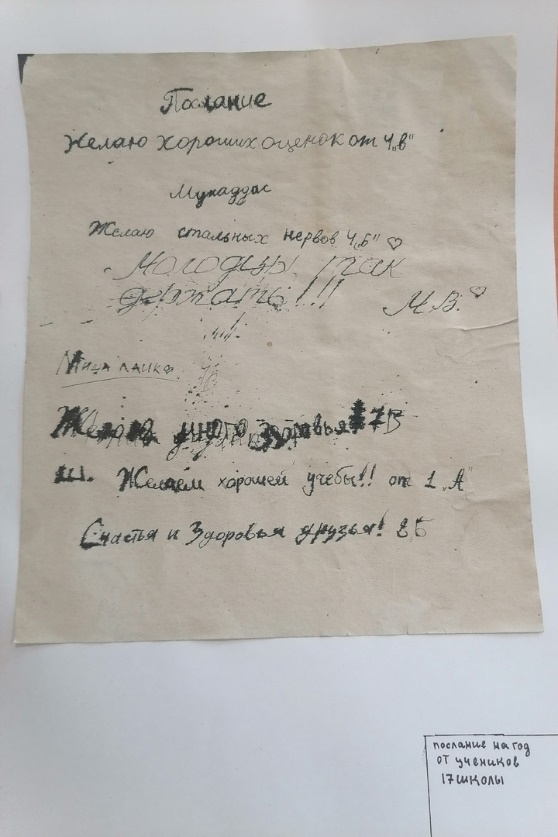 Послание
Желаю хороших оценок от 4 „в"
Мукаддас
Желаю стальных нервов 4 „Б" ♡
Молодцы! Так
держать!!!
М.В. ♡
Желаю много здоровья 7В
Ш. Желаем хорошей учебы!! от 1 „А"
Счастья и Здоровья друзья! 8Б
послание на год
от учеников
17 школы